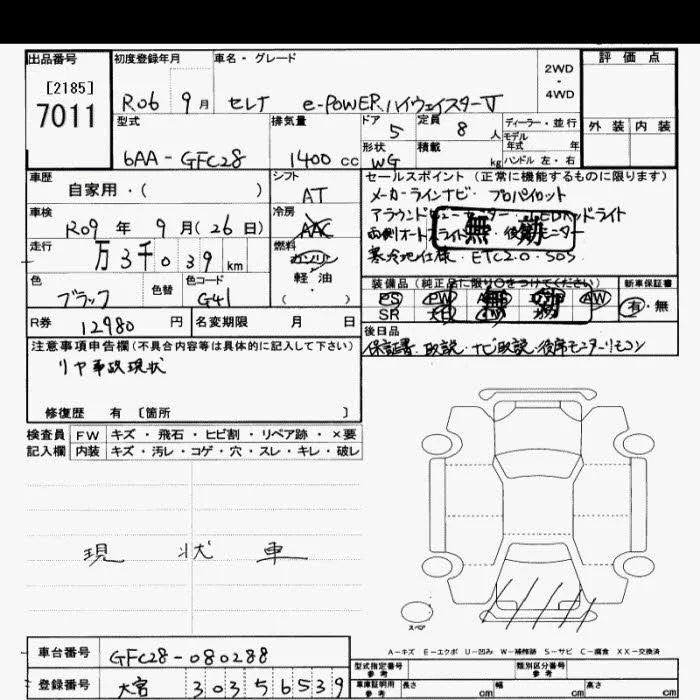 出品番号 初度登録年月 車名・グレード 2WD ・ 4WD 評価点
[2185]
7011
R06 9月 セレナ e-POWER ハイウェイスターV
外装 内装
型式 排気量 ドア 5 定員 8 人 ディーラー・並行
モデル年式 年
6AA-GFC28 1400 cc 形状 WG 積載 kg ハンドル 左・右
車歴 シフト セールスポイント (正常に機能するものに限ります)
自家用・( ) AT メーカーラインナビ・プロパイロット
車検 冷房 アラウンドビューモニター・LEDヘッドライト
R09 年 9 月(26日) AAC 無効
走行 燃料 両側オートスライド 後席モニター
万3千039 km ガソリン 寒冷地仕様・ETC2.0・SOS
軽油
( )
色 色替 色コード 装備品 (純正品に限り○をつけてください) 新車保証書
ブラック G41 PS PW AW 有・無
SR 無効
R券 12980 円 名変期限 月 日 後日品
保証書・取説・ナビ取説・後席モニターリモコン
注意事項申告欄(不具合内容等は具体的に記入して下さい)
リヤ事故現状
修復歴 有 [箇所 ]
検査員 FW キズ・飛石・ヒビ割・リペア跡・×要
記入欄 内装 キズ・汚レ・コゲ・穴・スレ・キレ・破レ
現状車
スペア
A-キズ E-エクボ U-凹み W-補修跡 S-サビ C-腐食 XX-交換済
車台番号 GFC28-080288
型式指定番号 参考 類別区分番号 参考
登録番号 大宮 303 す 6539
車庫証明用 参考 長さ cm 幅 cm 高さ cm